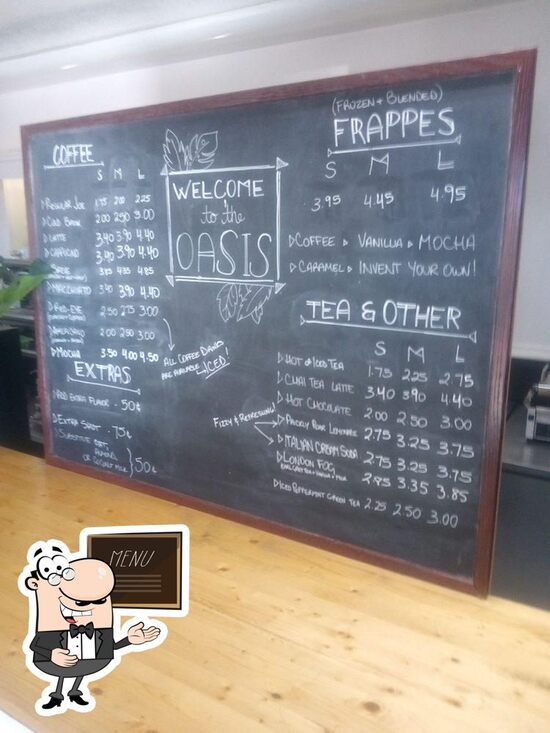 COFFEE
S M L
REGULAR JOE 1.75 2.00 2.25
COLD BREW 2.00 2.50 3.00
LATTE 3.40 3.90 4.40
3.40 3.90 4.40
3.85 4.35 4.85
MACCHIATO 3.40 3.90 4.40
RED-EYE 2.50 2.75 3.00
AMERICANO 2.00 2.50 3.00
MOCHA 3.50 4.00 4.50
ALL COFFEE DRINKS
ARE AVAILABLE ICED!
EXTRAS
ADD EXTRA FLAVOR . 50¢
EXTRA SHOT . 75¢
SUBSTITUTE OAT,
ALMOND,
OR COCONUT MILK } 50¢
WELCOME
to the
OASIS
(FROZEN & BLENDED)
FRAPPES
S M L
3.95 4.45 4.95
COFFEE VANILLA MOCHA
CARAMEL INVENT YOUR OWN!
TEA & OTHER
S M L
HOT or ICED TEA 1.75 2.25 2.75
CHAI TEA LATTE 3.40 3.90 4.40
HOT CHOCOLATE 2.00 2.50 3.00
FIZZY & REFRESHING!
PRICKLY PEAR LEMONADE 2.75 3.25 3.75
ITALIAN CREAM SODA 2.75 3.25 3.75
LONDON FOG 2.85 3.35 3.85
EARL GREY TEA + VANILLA + MILK
ICED PEPPERMINT GREEN TEA 2.25 2.50 3.00
MENU